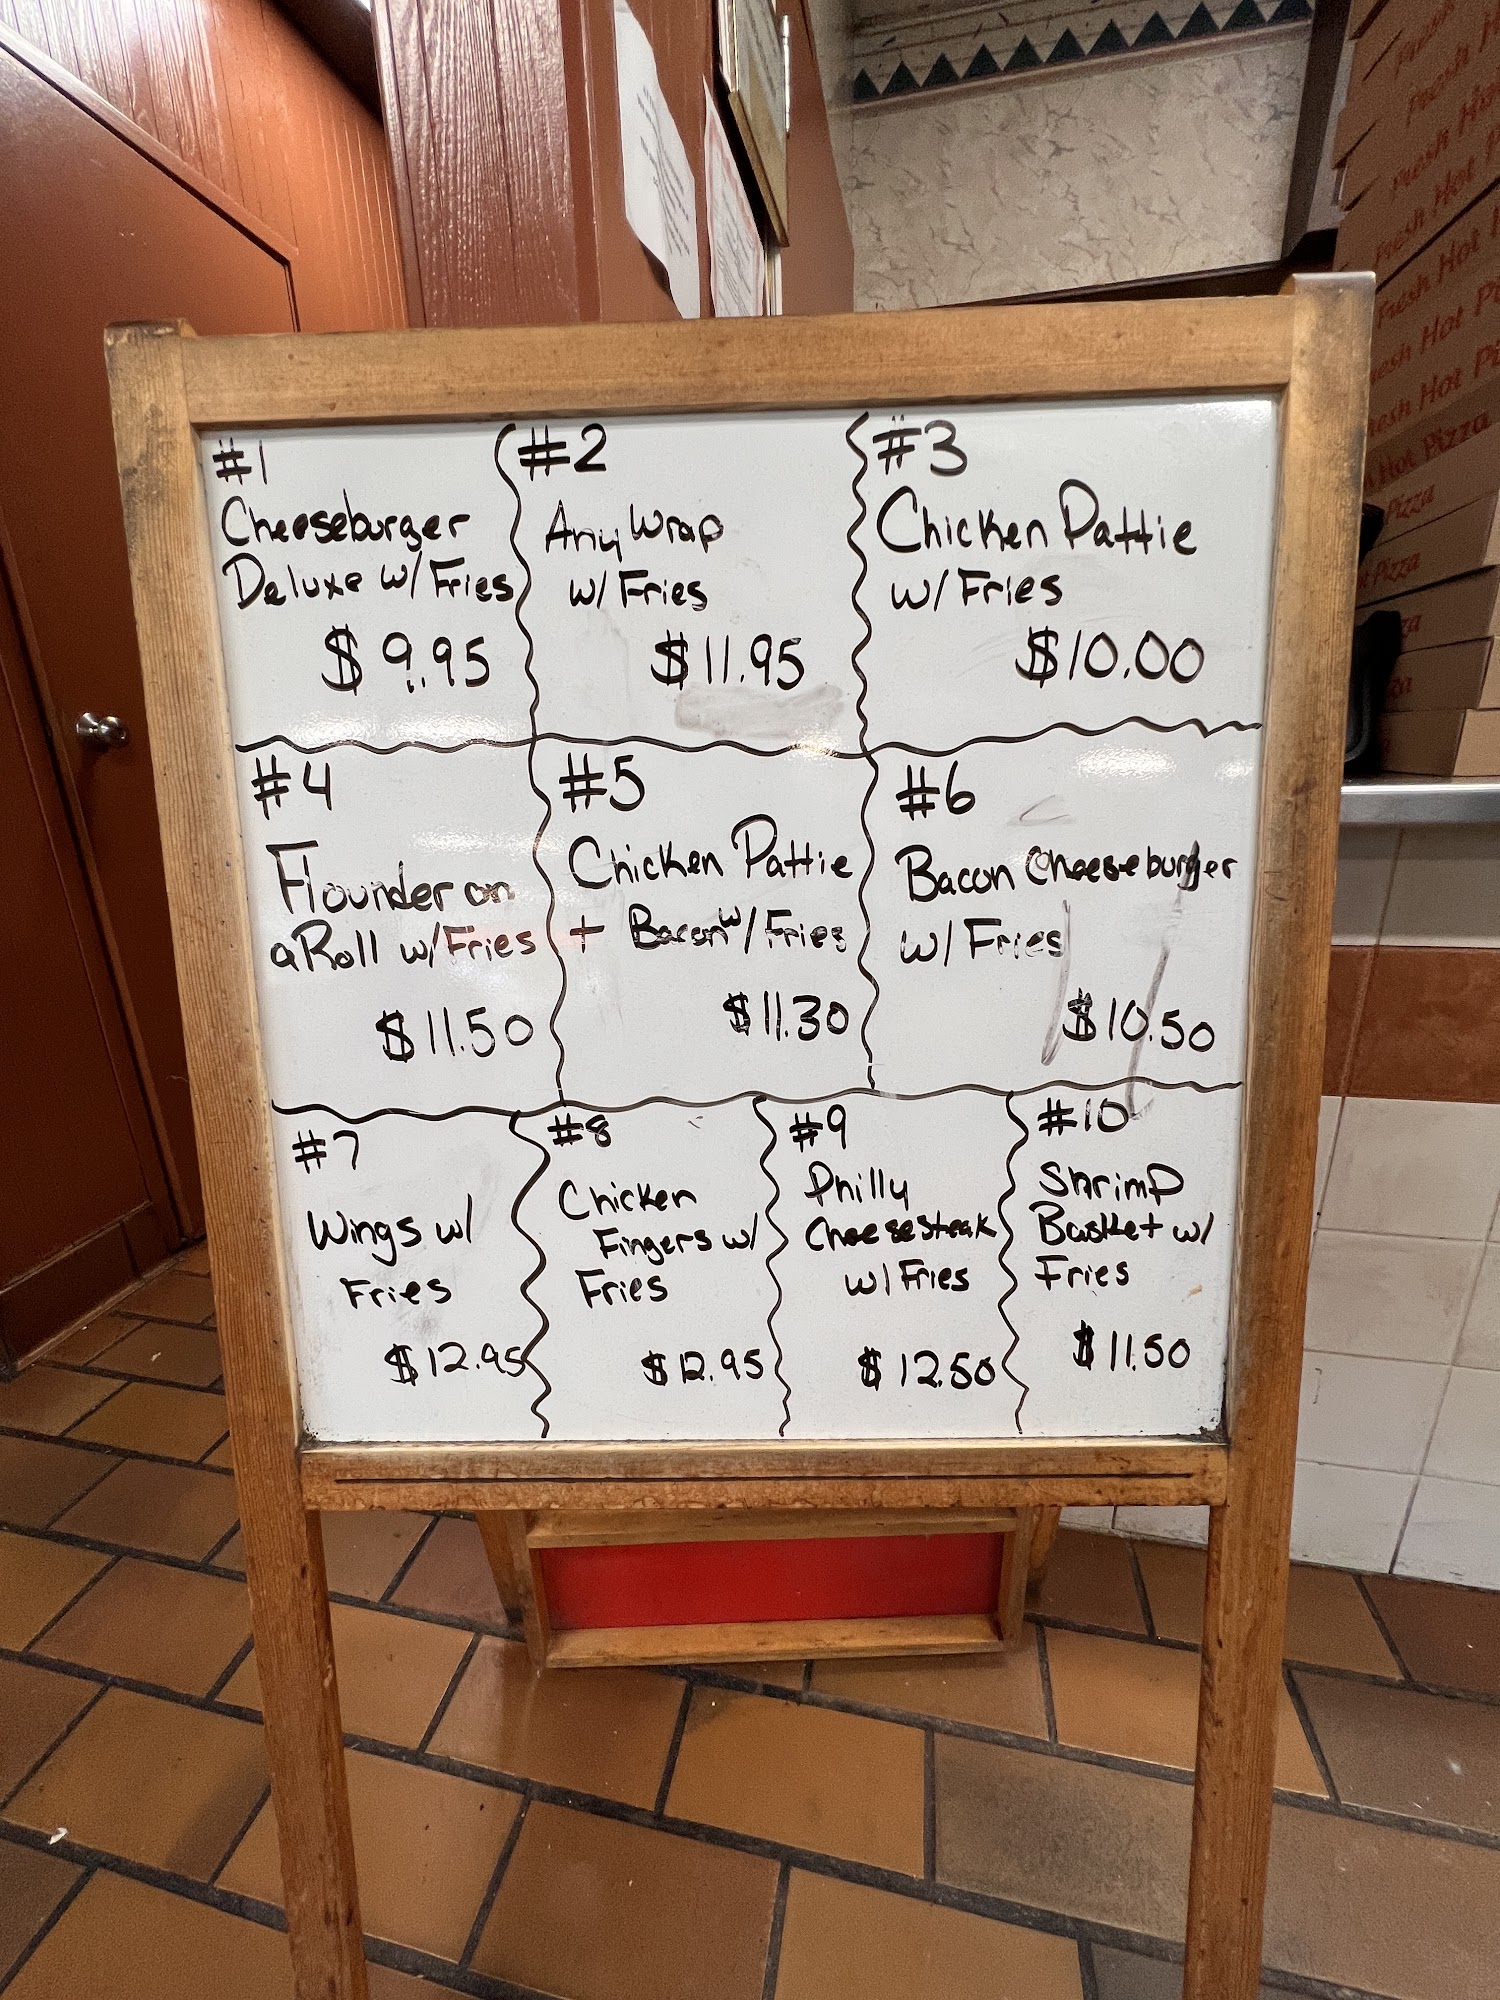 #1
Cheeseburger
Deluxe w/Fries
$9.95
#2
Any Wrap
w/Fries
$11.95
#3
Chicken Pattie
w/Fries
$10.00
#4
Flounder on
a Roll w/Fries
$11.50
#5
Chicken Pattie
+ Bacon w/Fries
$11.30
#6
Bacon Cheeseburger
w/Fries
$10.50
#7
Wings w/
Fries
$12.95
#8
Chicken
Fingers w/
Fries
$12.95
#9
Philly
Cheesesteak
w/Fries
$12.50
#10
Shrimp
Basket w/
Fries
$11.50
Fresh Hot
Fresh Hot
Fresh Hot
Fresh Hot Pi
Fresh Hot Pi
Hot Pizza
Pizza
Pizza